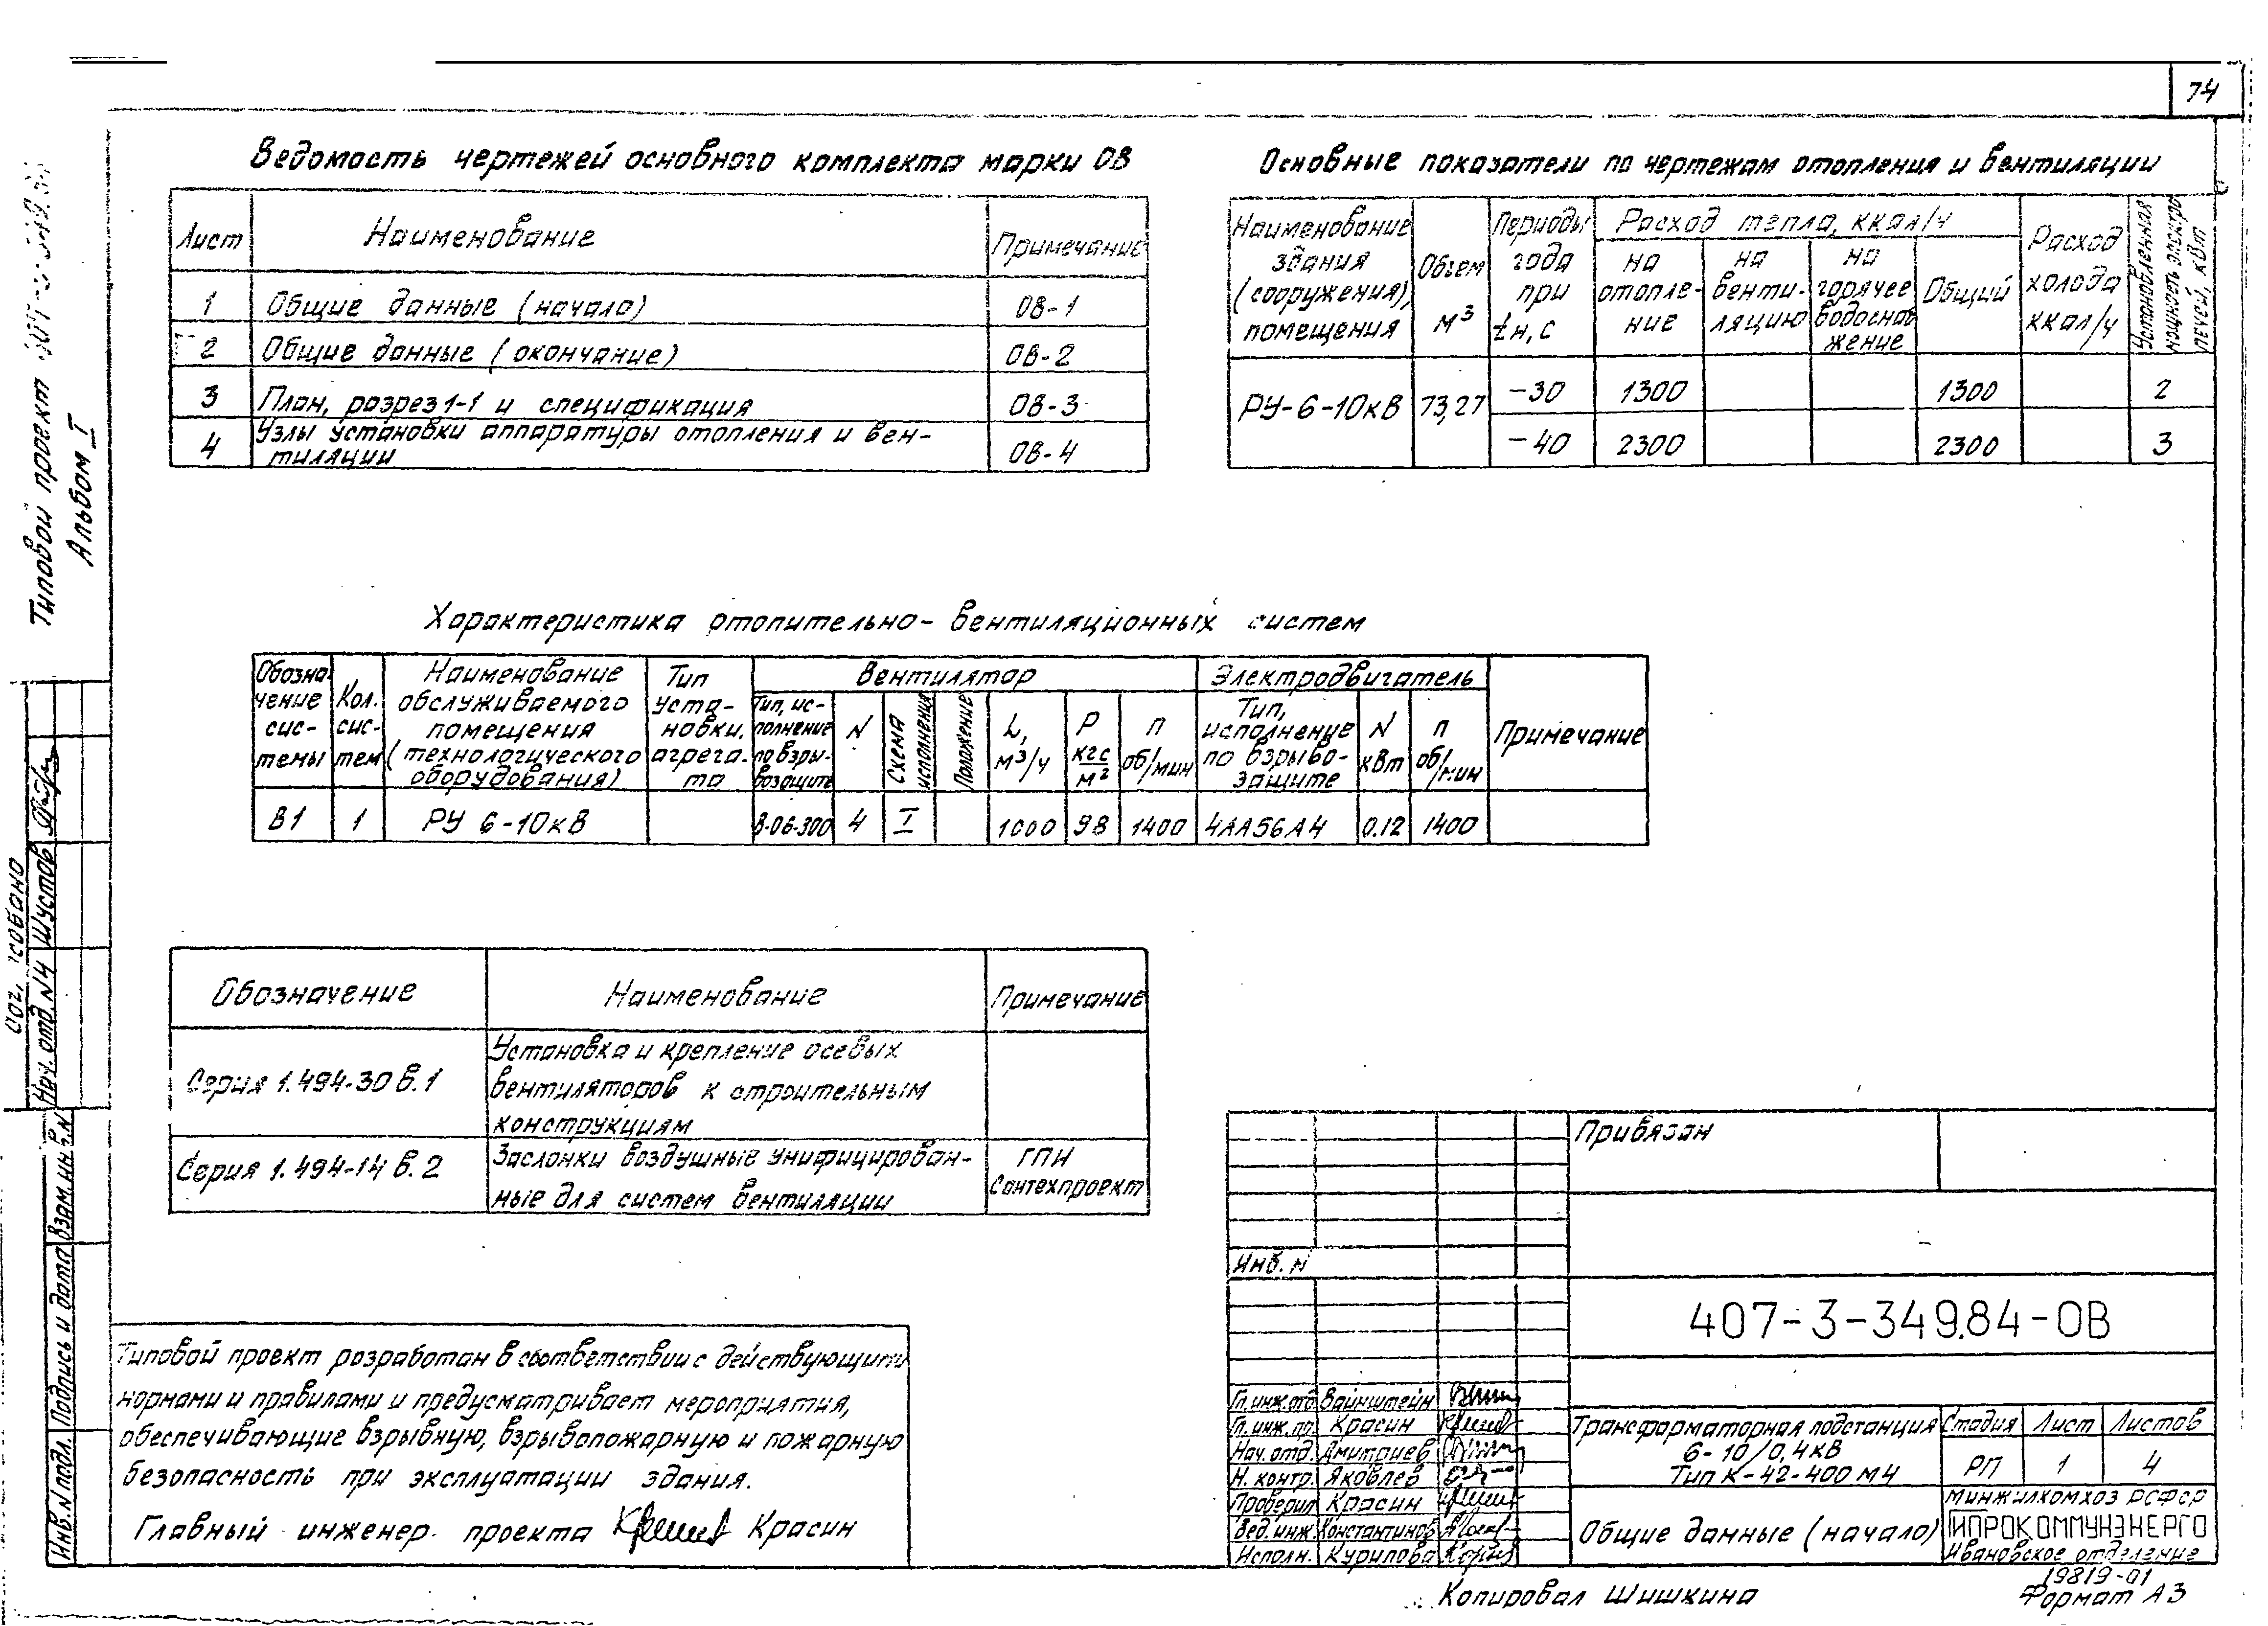 74
Ведомость чертежей основного комплекта марки ОВ
Лист Наименование Примечание
1 Общие данные (начало) ОВ-1
2 Общие данные (окончание) ОВ-2
3 План, разрез 1-1 и спецификация ОВ-3
4 Узлы установки аппаратуры отопления и вен-
тиляции ОВ-4
Основные показатели по чертежам отопления и вентиляции
Наименование
здания
(сооружения),
помещения
Объем
м³
Периоды
года
при
tн, с
Расход тепла, ккал/ч
на
отопле-
ние
на
венти-
ляцию
на
горячее
водоснаб
жение
Общий
Расход
холода
ккал/ч
Установленная
мощность электро
печей, кВт
РУ-6-10кВ 73,27 -30 1300 1300 2
-40 2300 2300 3
Характеристика отопительно-вентиляционных систем
Обозна
чение
сис-
темы
Кол.
сис-
тем
Наименование
обслуживаемого
помещения
(технологического
оборудования)
Тип
уста-
новки,
агрега-
та
Вентилятор
Тип, ис-
полнение
по взры-
возащите
N
Схема
исполнения
Положение
L,
м³/ч
Р
кгс
м²
п
об/мин
Электродвигатель
Тип,
исполнение
по взрыво-
защите
N
кВт
п
об/мин
Примечание
В1 1 РУ 6-10кВ В-06-300 4 I 1000 98 1400 4АА56А4 0.12 1400
Обозначение Наименование Примечание
Серия 1.494-30 в.1
Установка и крепление осевых
вентиляторов к строительным
конструкциям
Серия 1.494-14 в.2
Заслонки воздушные унифицирован-
ные для систем вентиляции
ГПИ
Сантехпроект
Типовой проект разработан в соответствии с действующими
нормами и правилами и предусматривает мероприятия,
обеспечивающие взрывную, взрывопожарную и пожарную
безопасность при эксплуатации здания.
Главный инженер проекта Красин
Типовой проект
Альбом I
Нач. отд. N4 Шустов
Взам. инв. N
Подпись и дата
Инв. N подл.
Привязан
Инв. N
407-3-349.84-ОВ
Гл. инж. отд Вайнштейн
Гл. инж. пр. Красин
Нач. отд. Дмитриев
Н. контр. Яковлев
Проверил Красин
Вед. инж. Константинов
Исполн. Курилова
Трансформаторная подстанция
6-10/0,4кВ
Тип К-42-400 М4
Стадия Лист Листов
РП 1 4
Общие данные (начало)
Минжилкомхоз РСФСР
ГИПРОКОММУНЭНЕРГО
Ивановское отделение
19819-01
Копировал Шишкина
Формат А3